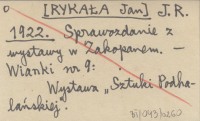 [RYKAŁA Jan] J.R.
1922. Sprawozdanie z
wystawy w Zakopanem. –
Wianki nr 9:
Wystawa „Sztuki Podha-
lańskiej".